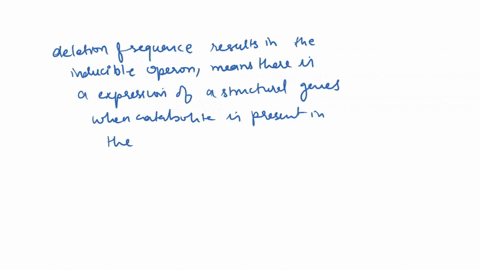 deletion of sequence results in the
inducible operon, means there is
a expression of a structural genes
when catabolite is present in
the